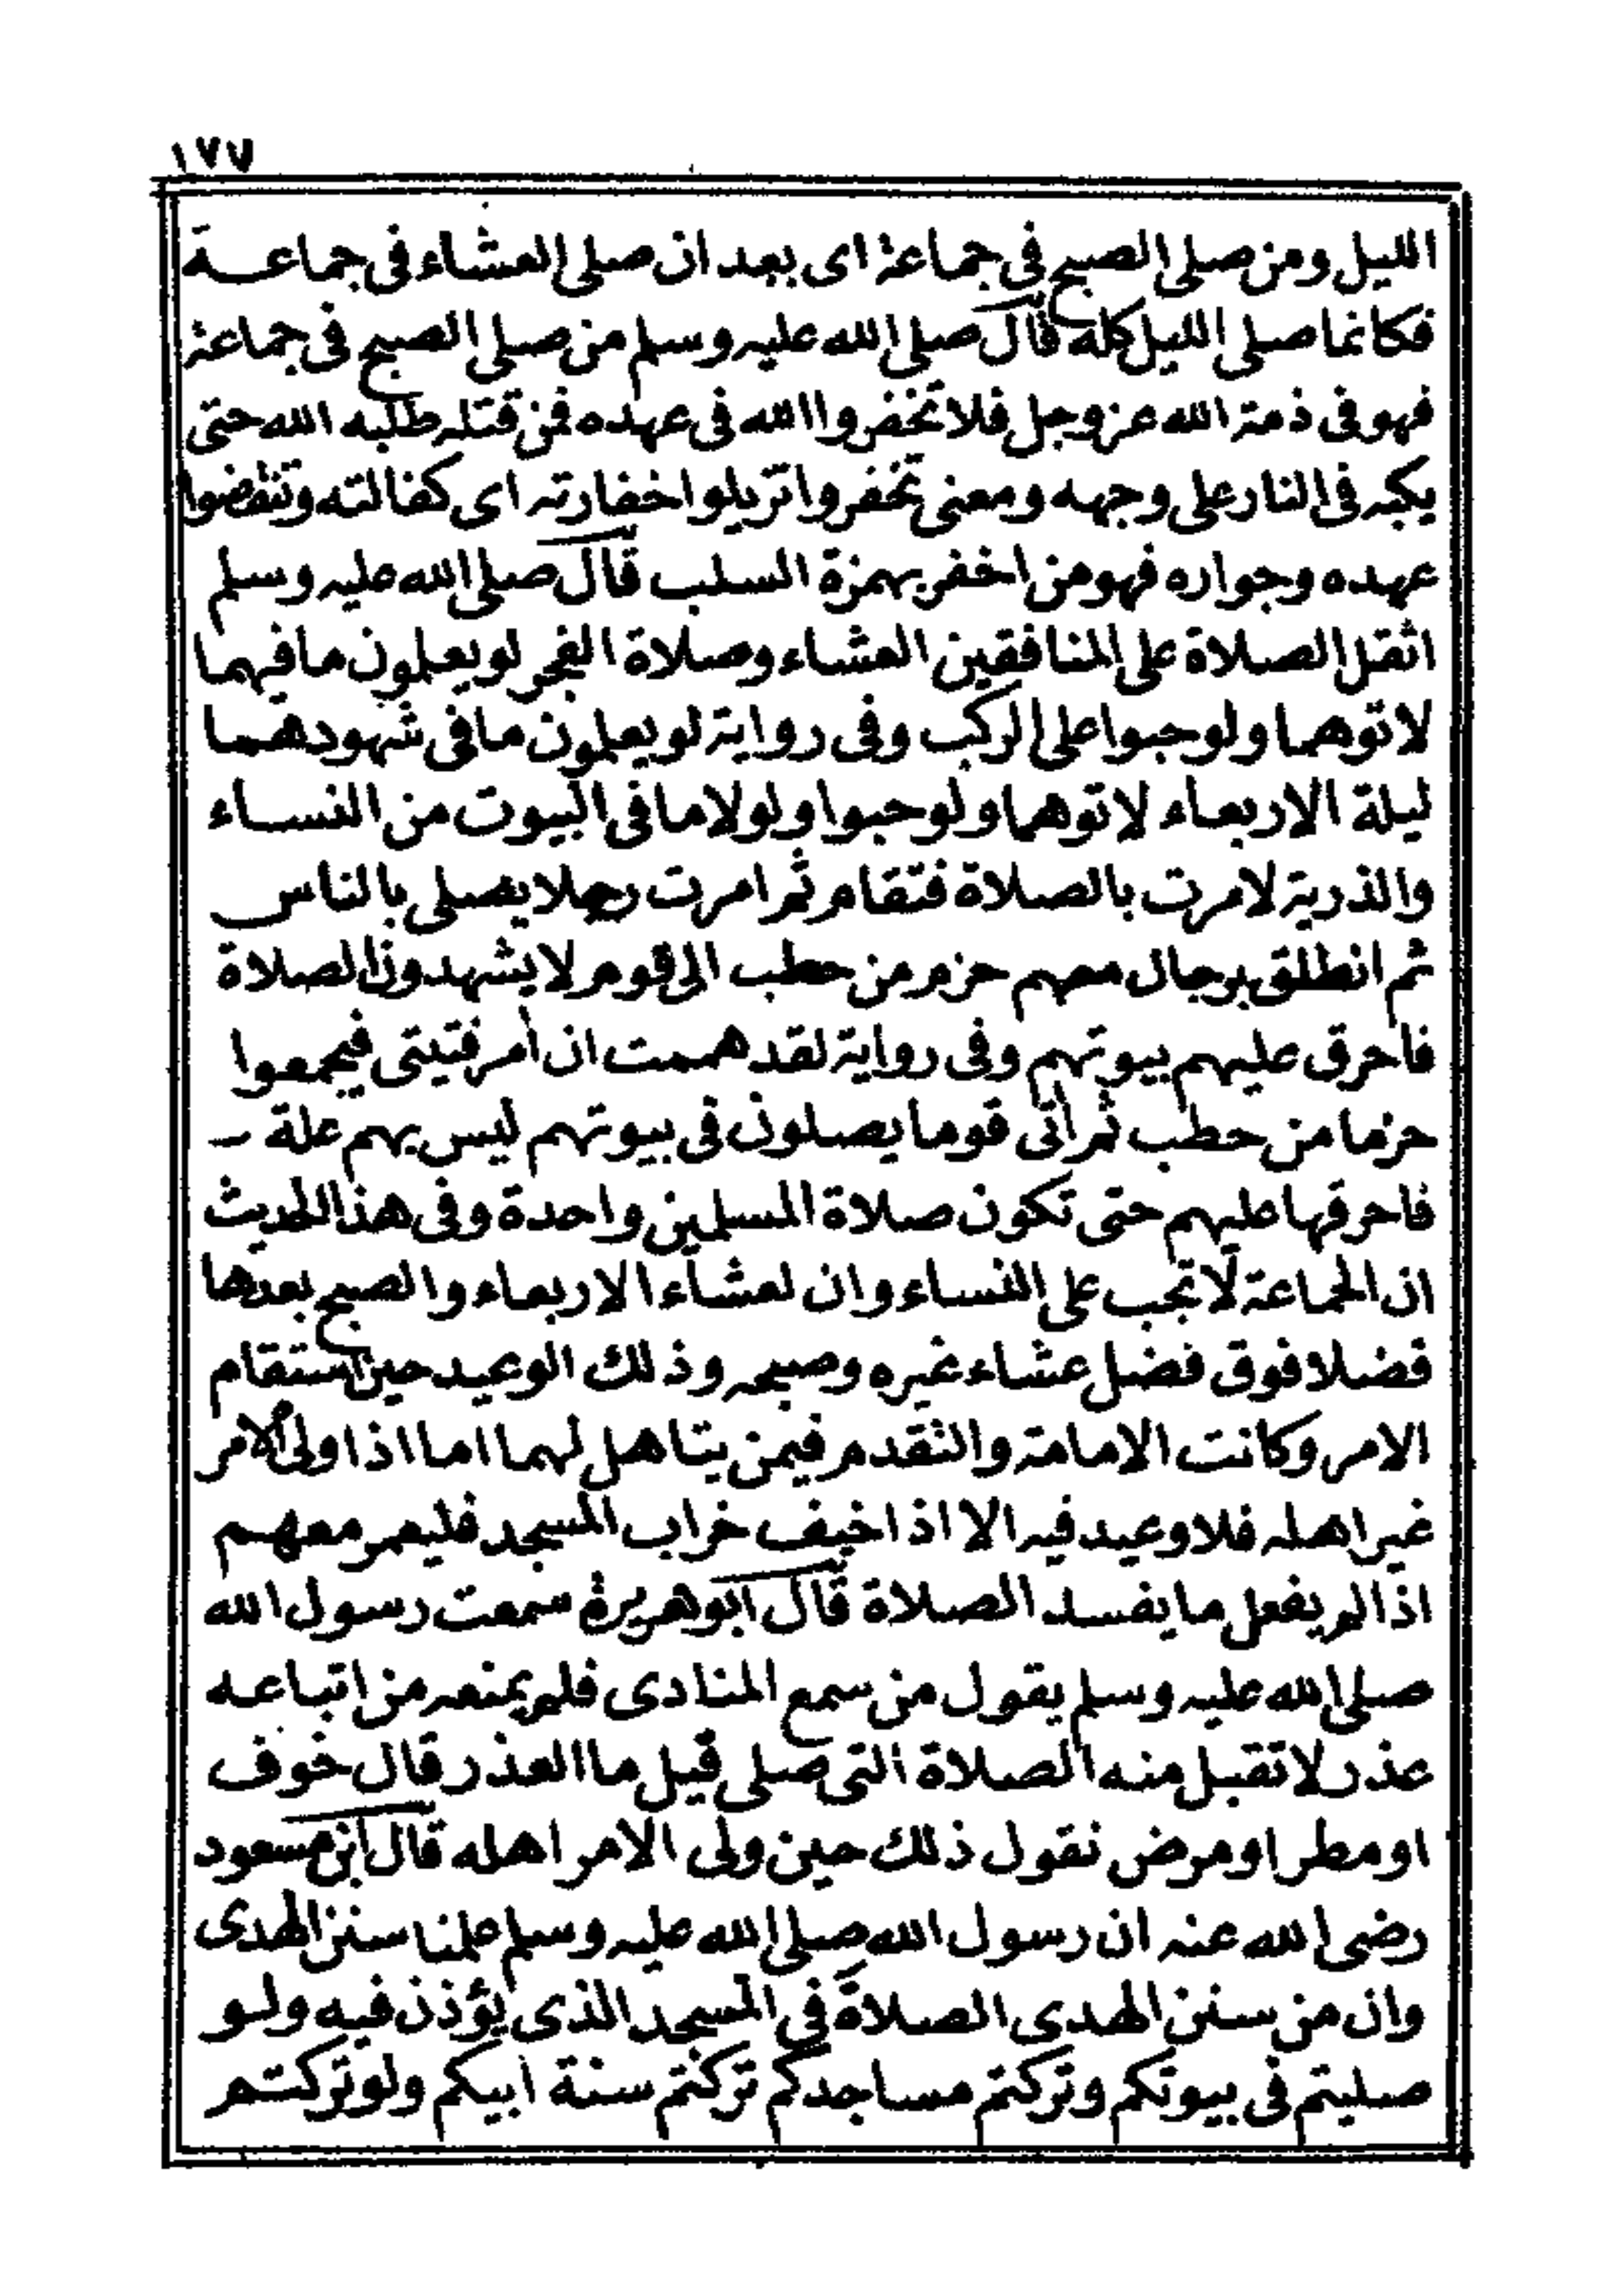 ١٧٧
الليل ومن صلى الصبح فى جماعة اى بعد ان صلى العشاء فى جماعة
فكانما صلى الليل كله قال صلى الله عليه وسلم من صلى الصبح فى جماعة
فهو فى ذمة الله عز وجل فلا تخفروا الله فى عهده فمن قتله طلبه الله حتى
يكبه فى النار على وجهه ومعنى تخفروا تزيلوا خفارته اى كفالته وتنقضوا
عهده وجواره فهو من اخفر بهمزة السلب قال صلى الله عليه وسلم
اثقل الصلاة على المنافقين العشاء وصلاة الفجر لو يعلمون ما فيهما
لاتوهما ولو حبوا على الركب وفى رواية لو يعلمون ما فى شهودهما
ليلة الاربعاء لاتوهما ولو حبوا ولولا ما فى البيوت من النساء
والذرية لامرت بالصلاة فتقام ثم امرت رجلا يصلى بالناس
ثم انطلق برجال معهم حزم من حطب الى قوم لا يشهدون الصلاة
فاحرق عليهم بيوتهم وفى رواية لقد هممت ان أمر فتيتى فيجمعوا
حزما من حطب ثم أتى قوما يصلون فى بيوتهم ليس بهم علة ـ
فاحرقها عليهم حتى تكون صلاة المسلمين واحدة وفى هذا الحديث
ان الجماعة لا تجب على النساء وان لعشاء الاربعاء والصبح بعدها
فضلا فوق فضل عشاء غيره وصبحه وذلك الوعيد حين استقام
الامر وكانت الامامة والتقدم فيمن يتاهل لهما اما اذا ولى الامر
غير اهله فلا وعيد فيه الا اذا خيف خراب المسجد فليعمر معهم
اذا لم يفعل ما يفسد الصلاة قال ابو هريرة سمعت رسول الله
صلى الله عليه وسلم يقول من سمع المنادى فلم يمنعه من اتباعه
عذر لا تقبل منه الصلاة التى صلى قيل ما العذر قال خوف
او مطر او مرض نقول ذلك حين ولى الامر اهله قال ابن مسعود
رضى الله عنه ان رسول الله صلى الله عليه وسلم علمنا سنن الهدى
وان من سنن الهدى الصلاة فى المسجد الذى يؤذن فيه ولو
صليتم فى بيوتكم وتركتم مساجدكم تركتم سنة ابيكم ولو تركتم